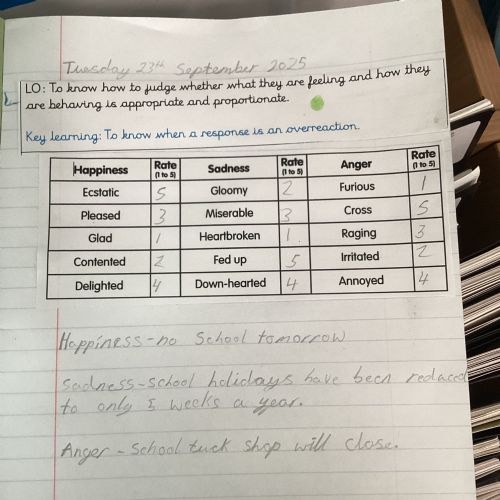 Tuesday 23rd September 2025
LO: To know how to judge whether what they are feeling and how they
are behaving is appropriate and proportionate.
Key learning: To know when a response is an overreaction.
Happiness Rate (1 to 5) Sadness Rate (1 to 5) Anger Rate (1 to 5)
Ecstatic 5 Gloomy 2 Furious 1
Pleased 3 Miserable 3 Cross 5
Glad 1 Heartbroken 1 Raging 3
Contented 2 Fed up 5 Irritated 2
Delighted 4 Down-hearted 4 Annoyed 4
Happiness-no School tomorrow
Sadness-School holidays have been reduced
to only 5 weeks a year.
Anger - School tuck shop will close.